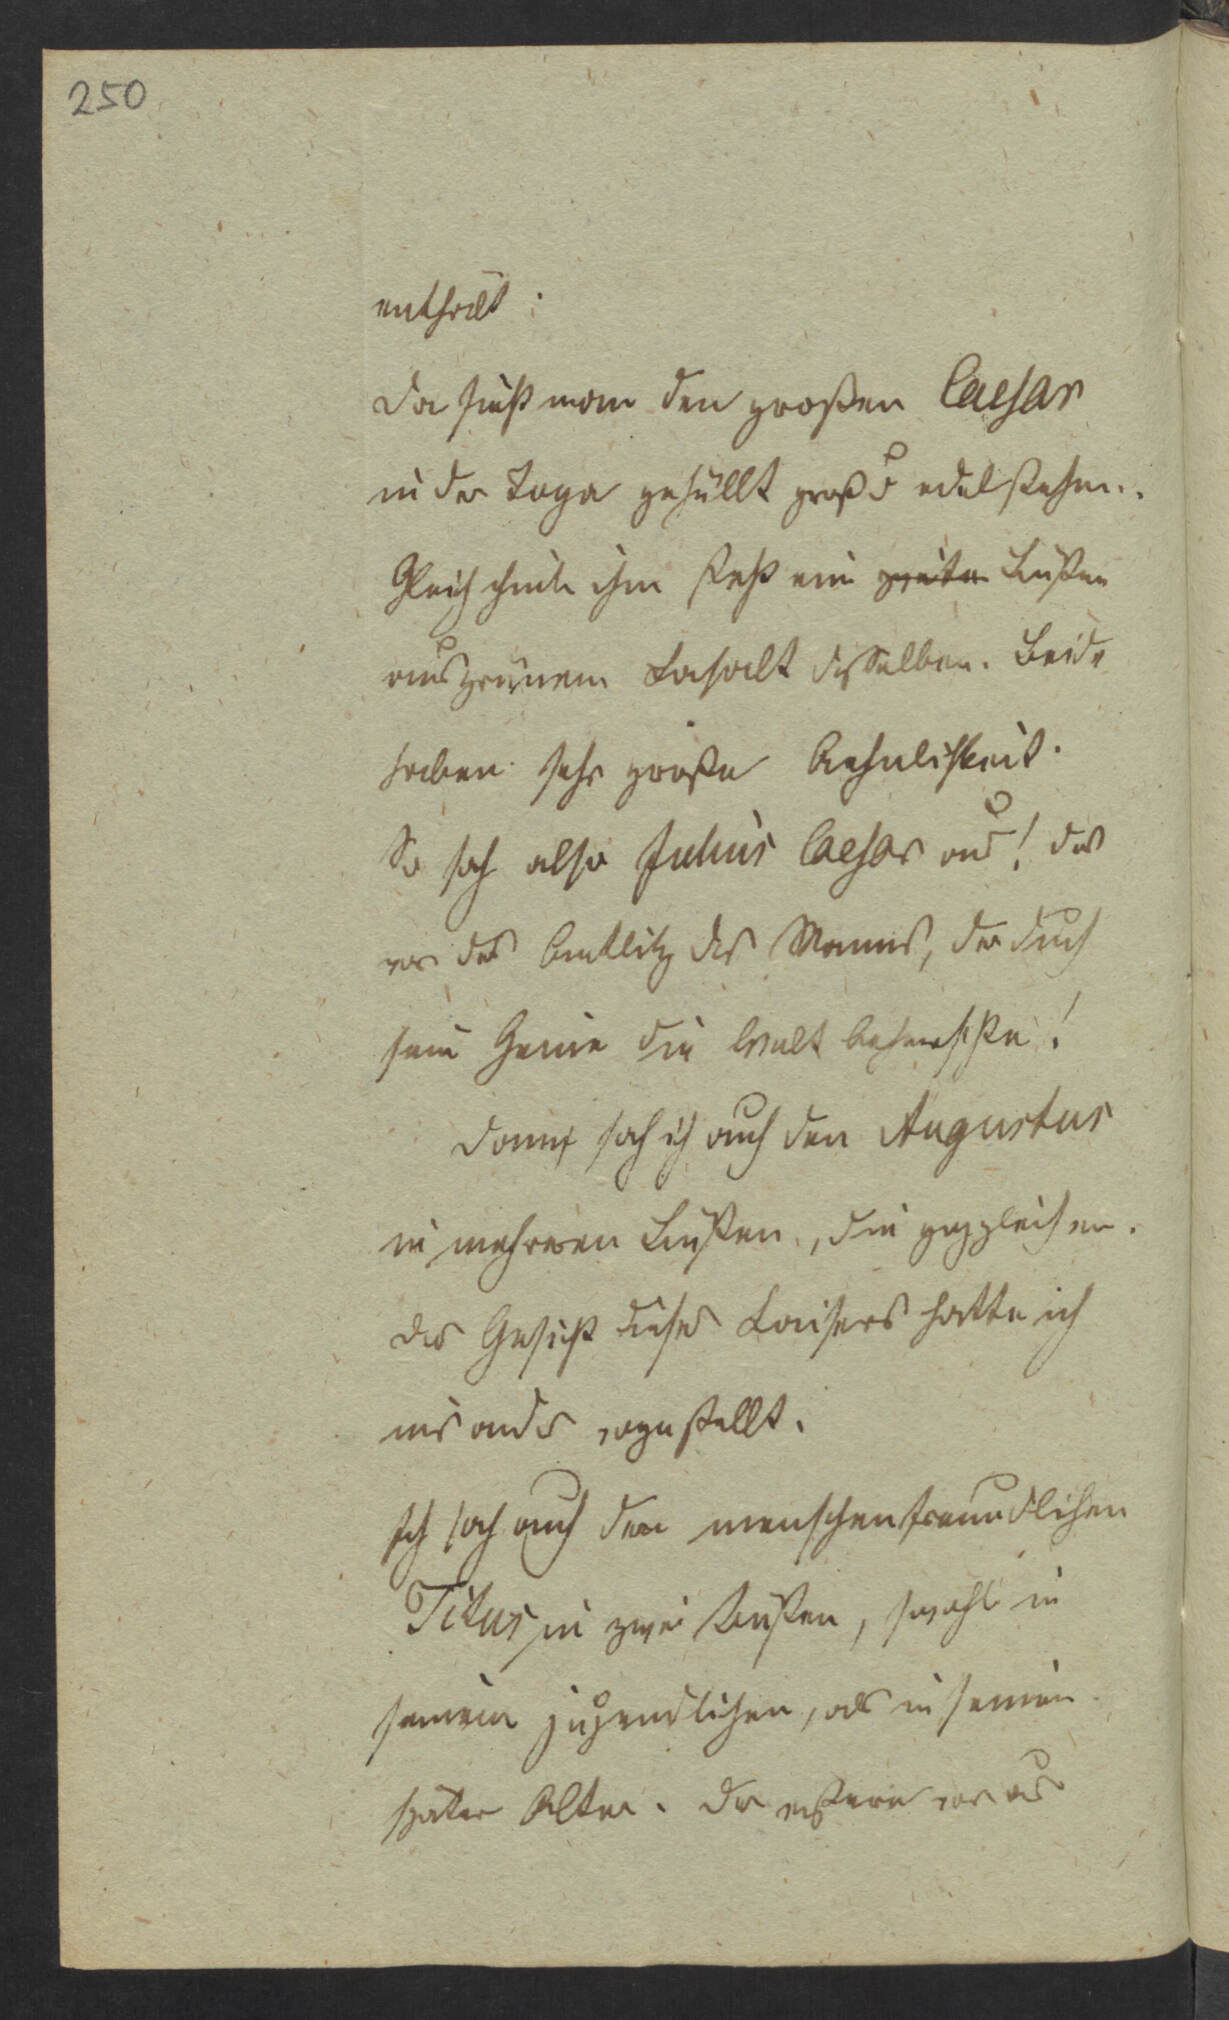 250
enthält:
Da sieht man den großen Caesar
in der Toga gehüllt groß u edel stehen.
Gleich hinter ihm steht eine zweite Büste
aus grünem Basalt desselben. Beide
haben sehr große Aehnlichkeit.
So sah also Julius Caesar aus! das
war das Antlitz des Mannes, der durch
sein Genie die Welt beherrschte!
Dann sah ich auch den Augustus
in mehreren Büsten, die
das Gesicht dieses Kaisers hatte ich
mir anders vorgestellt.
Ich sah auch den menschenfreundlichen
Titus in zwei Büsten, sowohl in
seinem jugendlichen, als in seinem
später Alter. Die erstere war aus